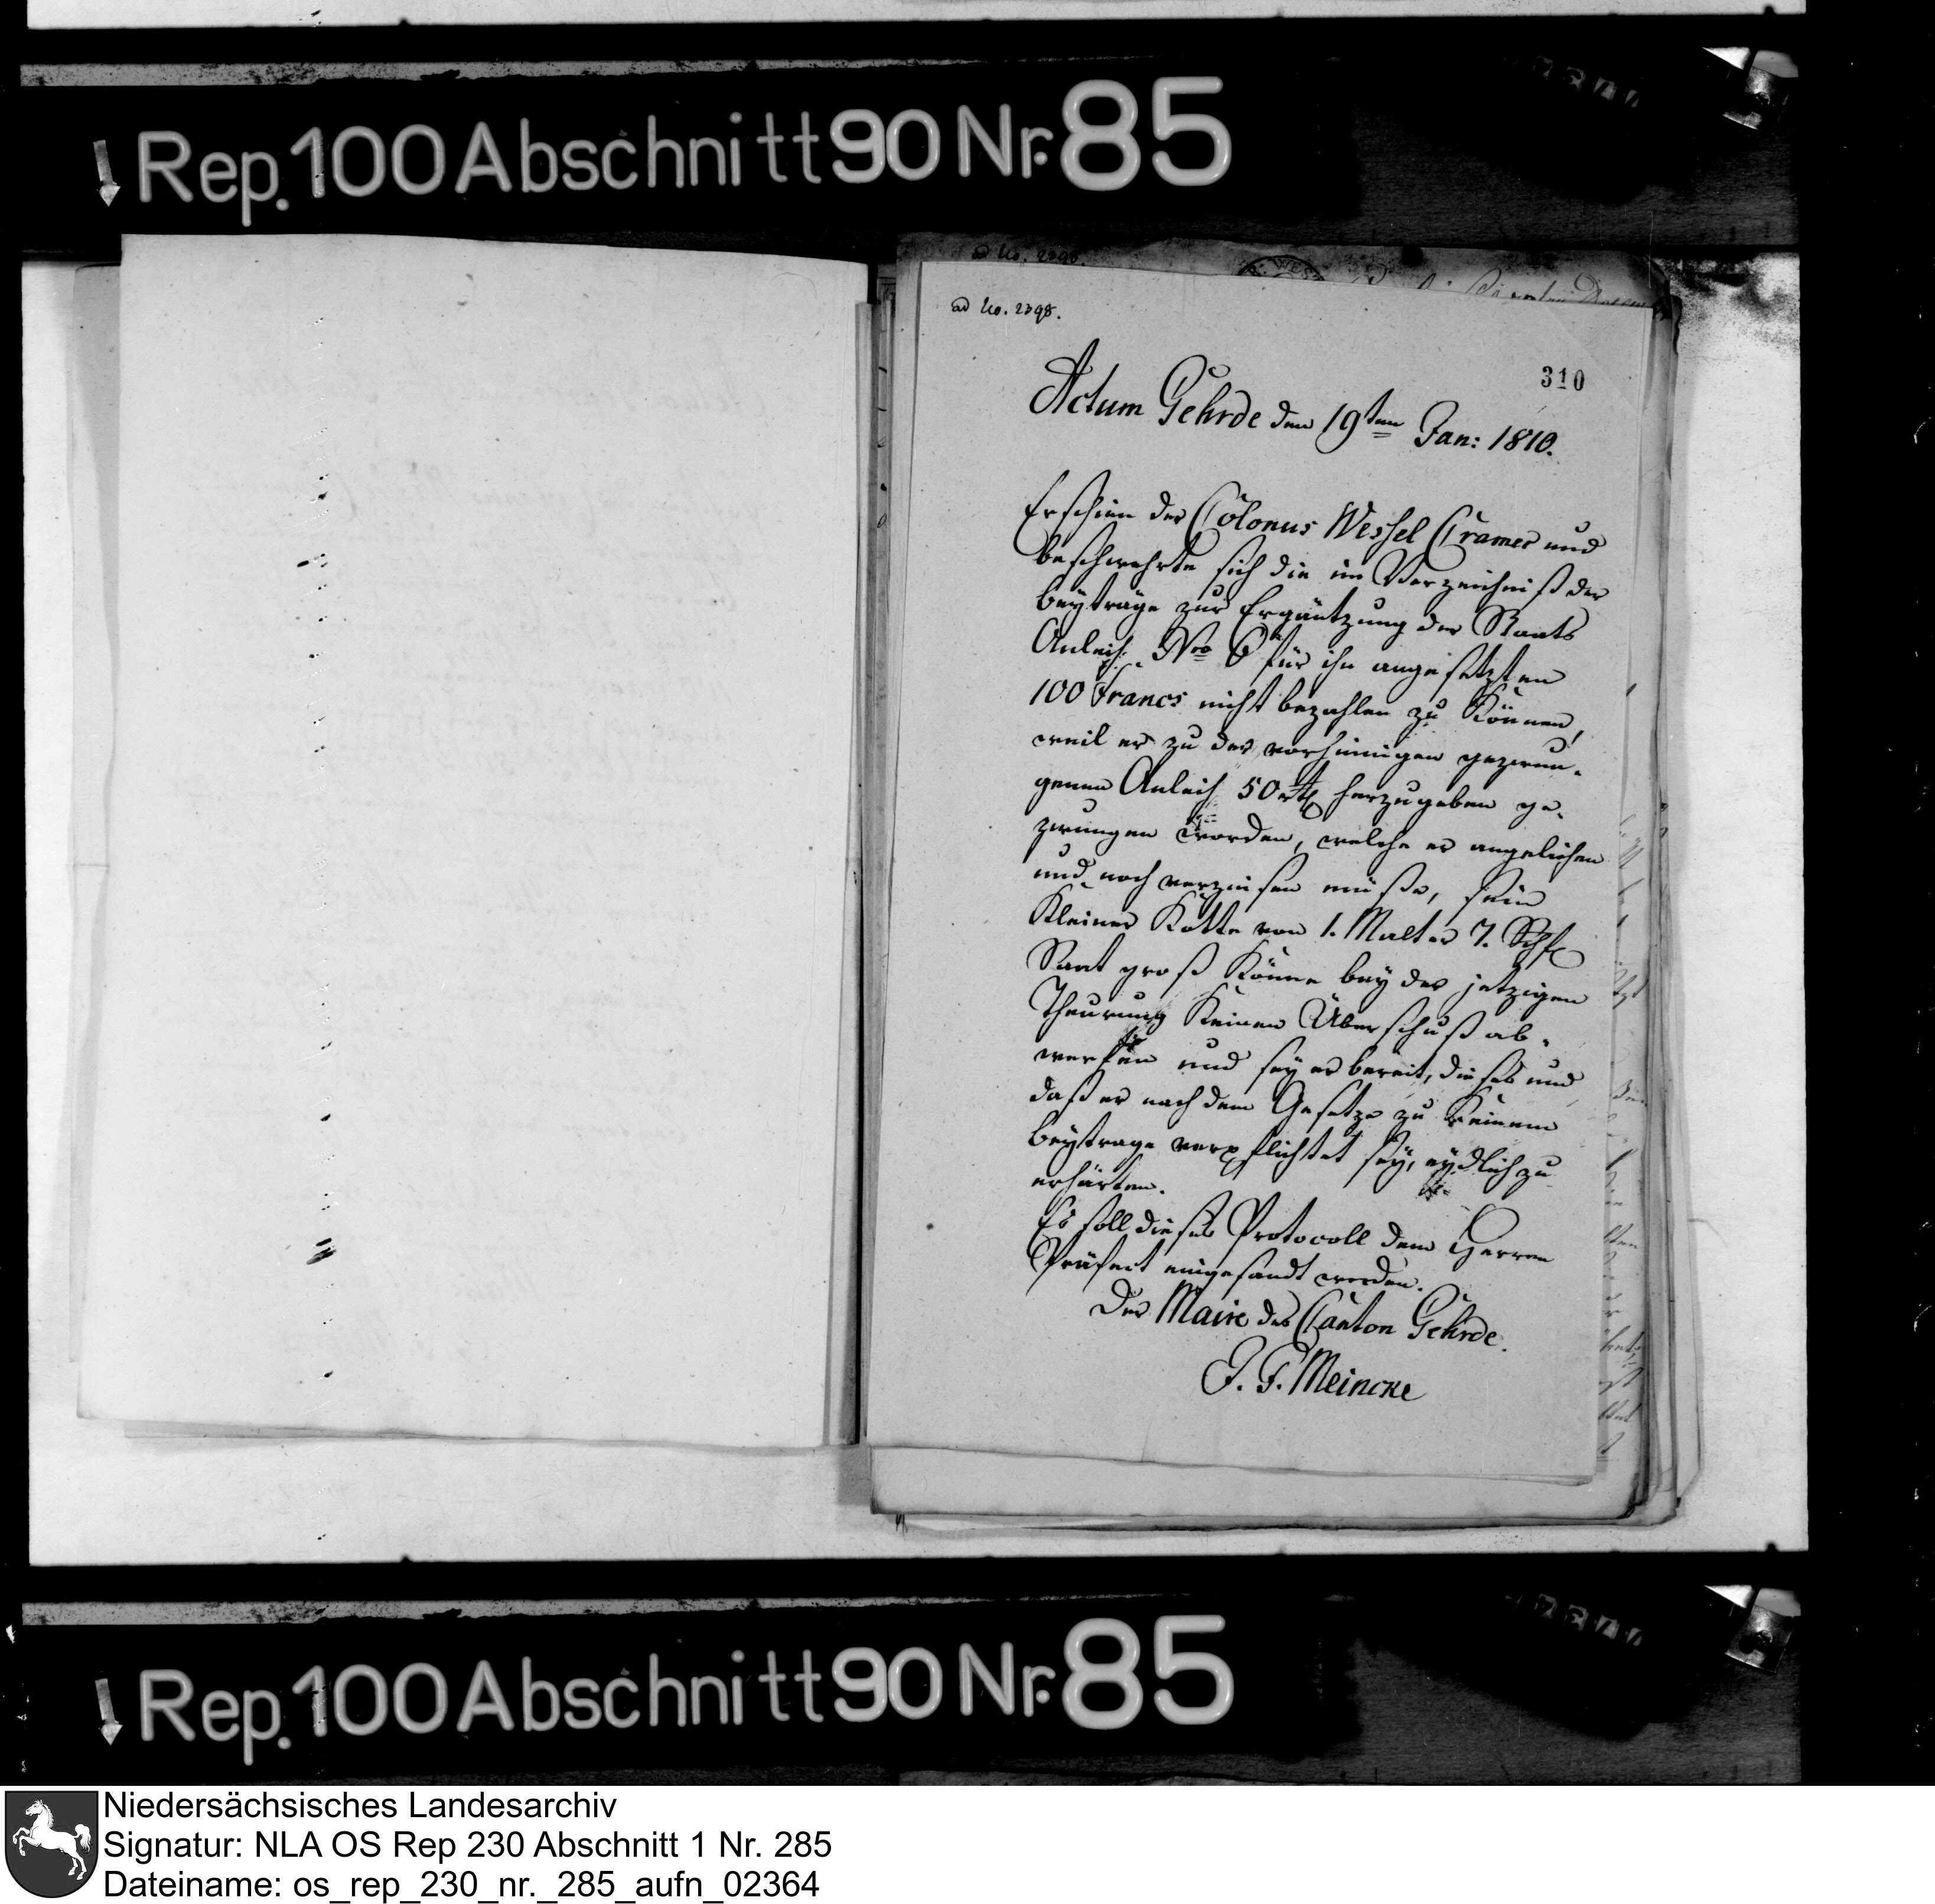 Rep. 100 Abschnitt 90 Nr. 85
ad No. 2398.
ad No. 2398.
310
Actum Gehrde den 19ten Jan: 1810.
Erschien der Colonus Wessel Cramer und
beschwehrte sich die im Verzeichniß der
beyträge zur Ergäntzung der Staats
Anleih. Nro 6 für ihn angesetzten
100 Francs nicht bezahlen zu können,
weil er zu der vorhinnigen gezwun-
genen Anleih 50 rtl herzugeben ge-
zwungen worden, welche er angeliehen
und noch verzinsen müße, sein
kleiner Kotte von 1. Malter 7. Schfl
Saat groß könne bey der jetzigen
Theurung keinen Überschuß ab-
werfen und sey er bereit, dieses und
daß er nach dem Gesetze zu keinem
beytrage verpflichtet sey, eydlich zu
erhärten.
Es soll dieses Protocoll dem Herren
Präfect eingesandt werden.
Der Maire des Canton Gehrde.
J. F. Meincke
Rep. 100 Abschnitt 90 Nr. 85
Niedersächsisches Landesarchiv
Signatur: NLA OS Rep 230 Abschnitt 1 Nr. 285
Dateiname: os_rep_230_nr._285_aufn_02364